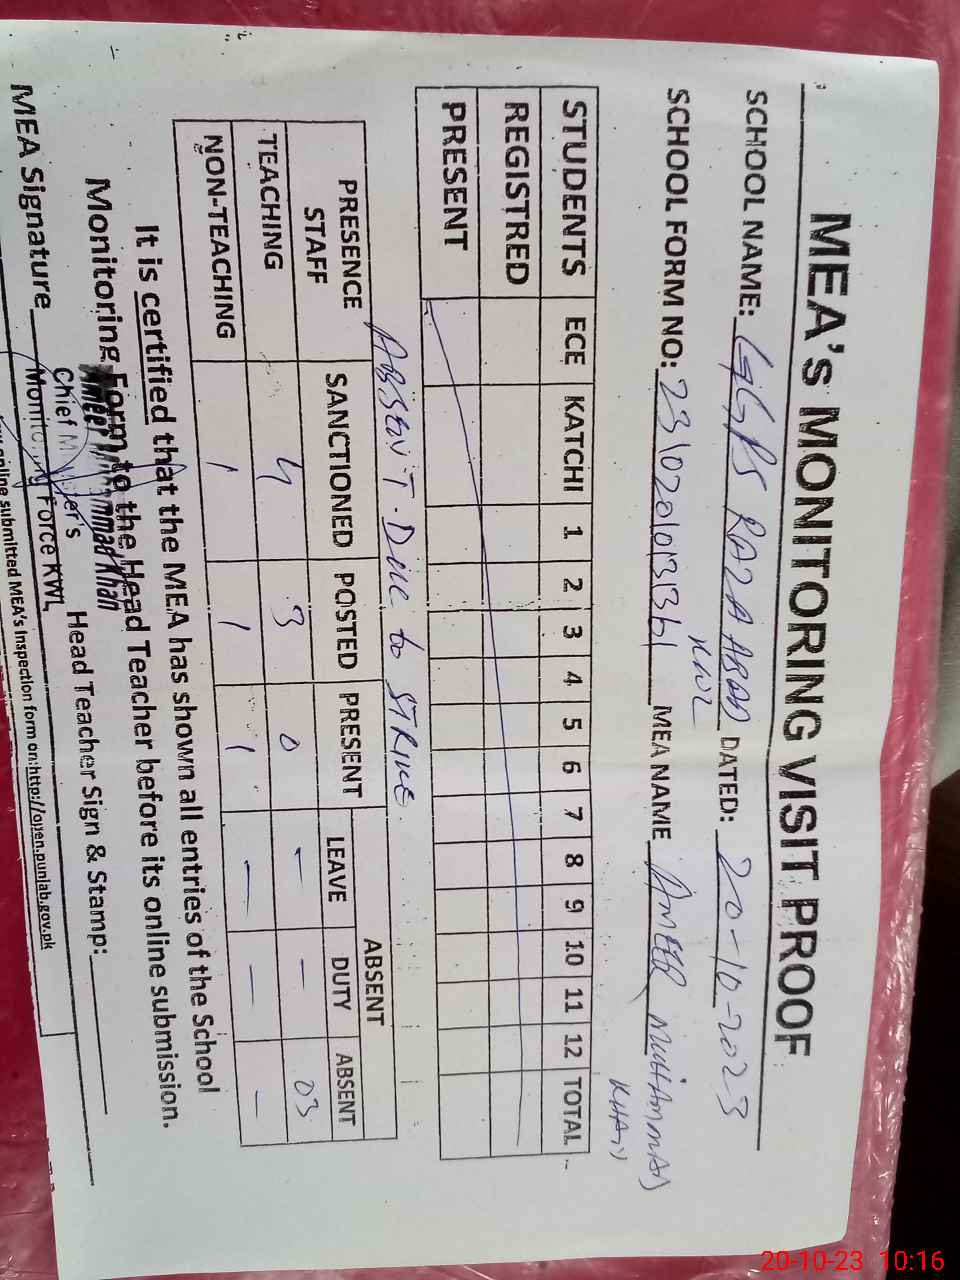 MEA's MONITORING VISIT PROOF
SCHOOL NAME: GGPS RAZA ABAD KWL DATED: 20-10-2023
SCHOOL FORM NO: MEA NAME AMEER MUHAMMAD KHAN
STUDENTS ECE KATCHI 1 2 3 4 5 6 7 8 9 10 11 12 TOTAL
REGISTRED
PRESENT
ABSENT Due to STRIKE.
PRESENCE STAFF SANCTIONED POSTED PRESENT ABSENT
LEAVE DUTY ABSENT
TEACHING 4 3 0 - - 03
NON-TEACHING 1 1 1 - - -
It is certified that the MEA has shown all entries of the School
Monitoring Form to the Head Teacher before its online submission.
Ameer Muhammad Khan
Chief Minister's
Monitoring Force KWL
MEA Signature Head Teacher Sign & Stamp:
online submitted MEA's Inspection form on:http://open.punjab.gov.pk
20-10-23 10:16